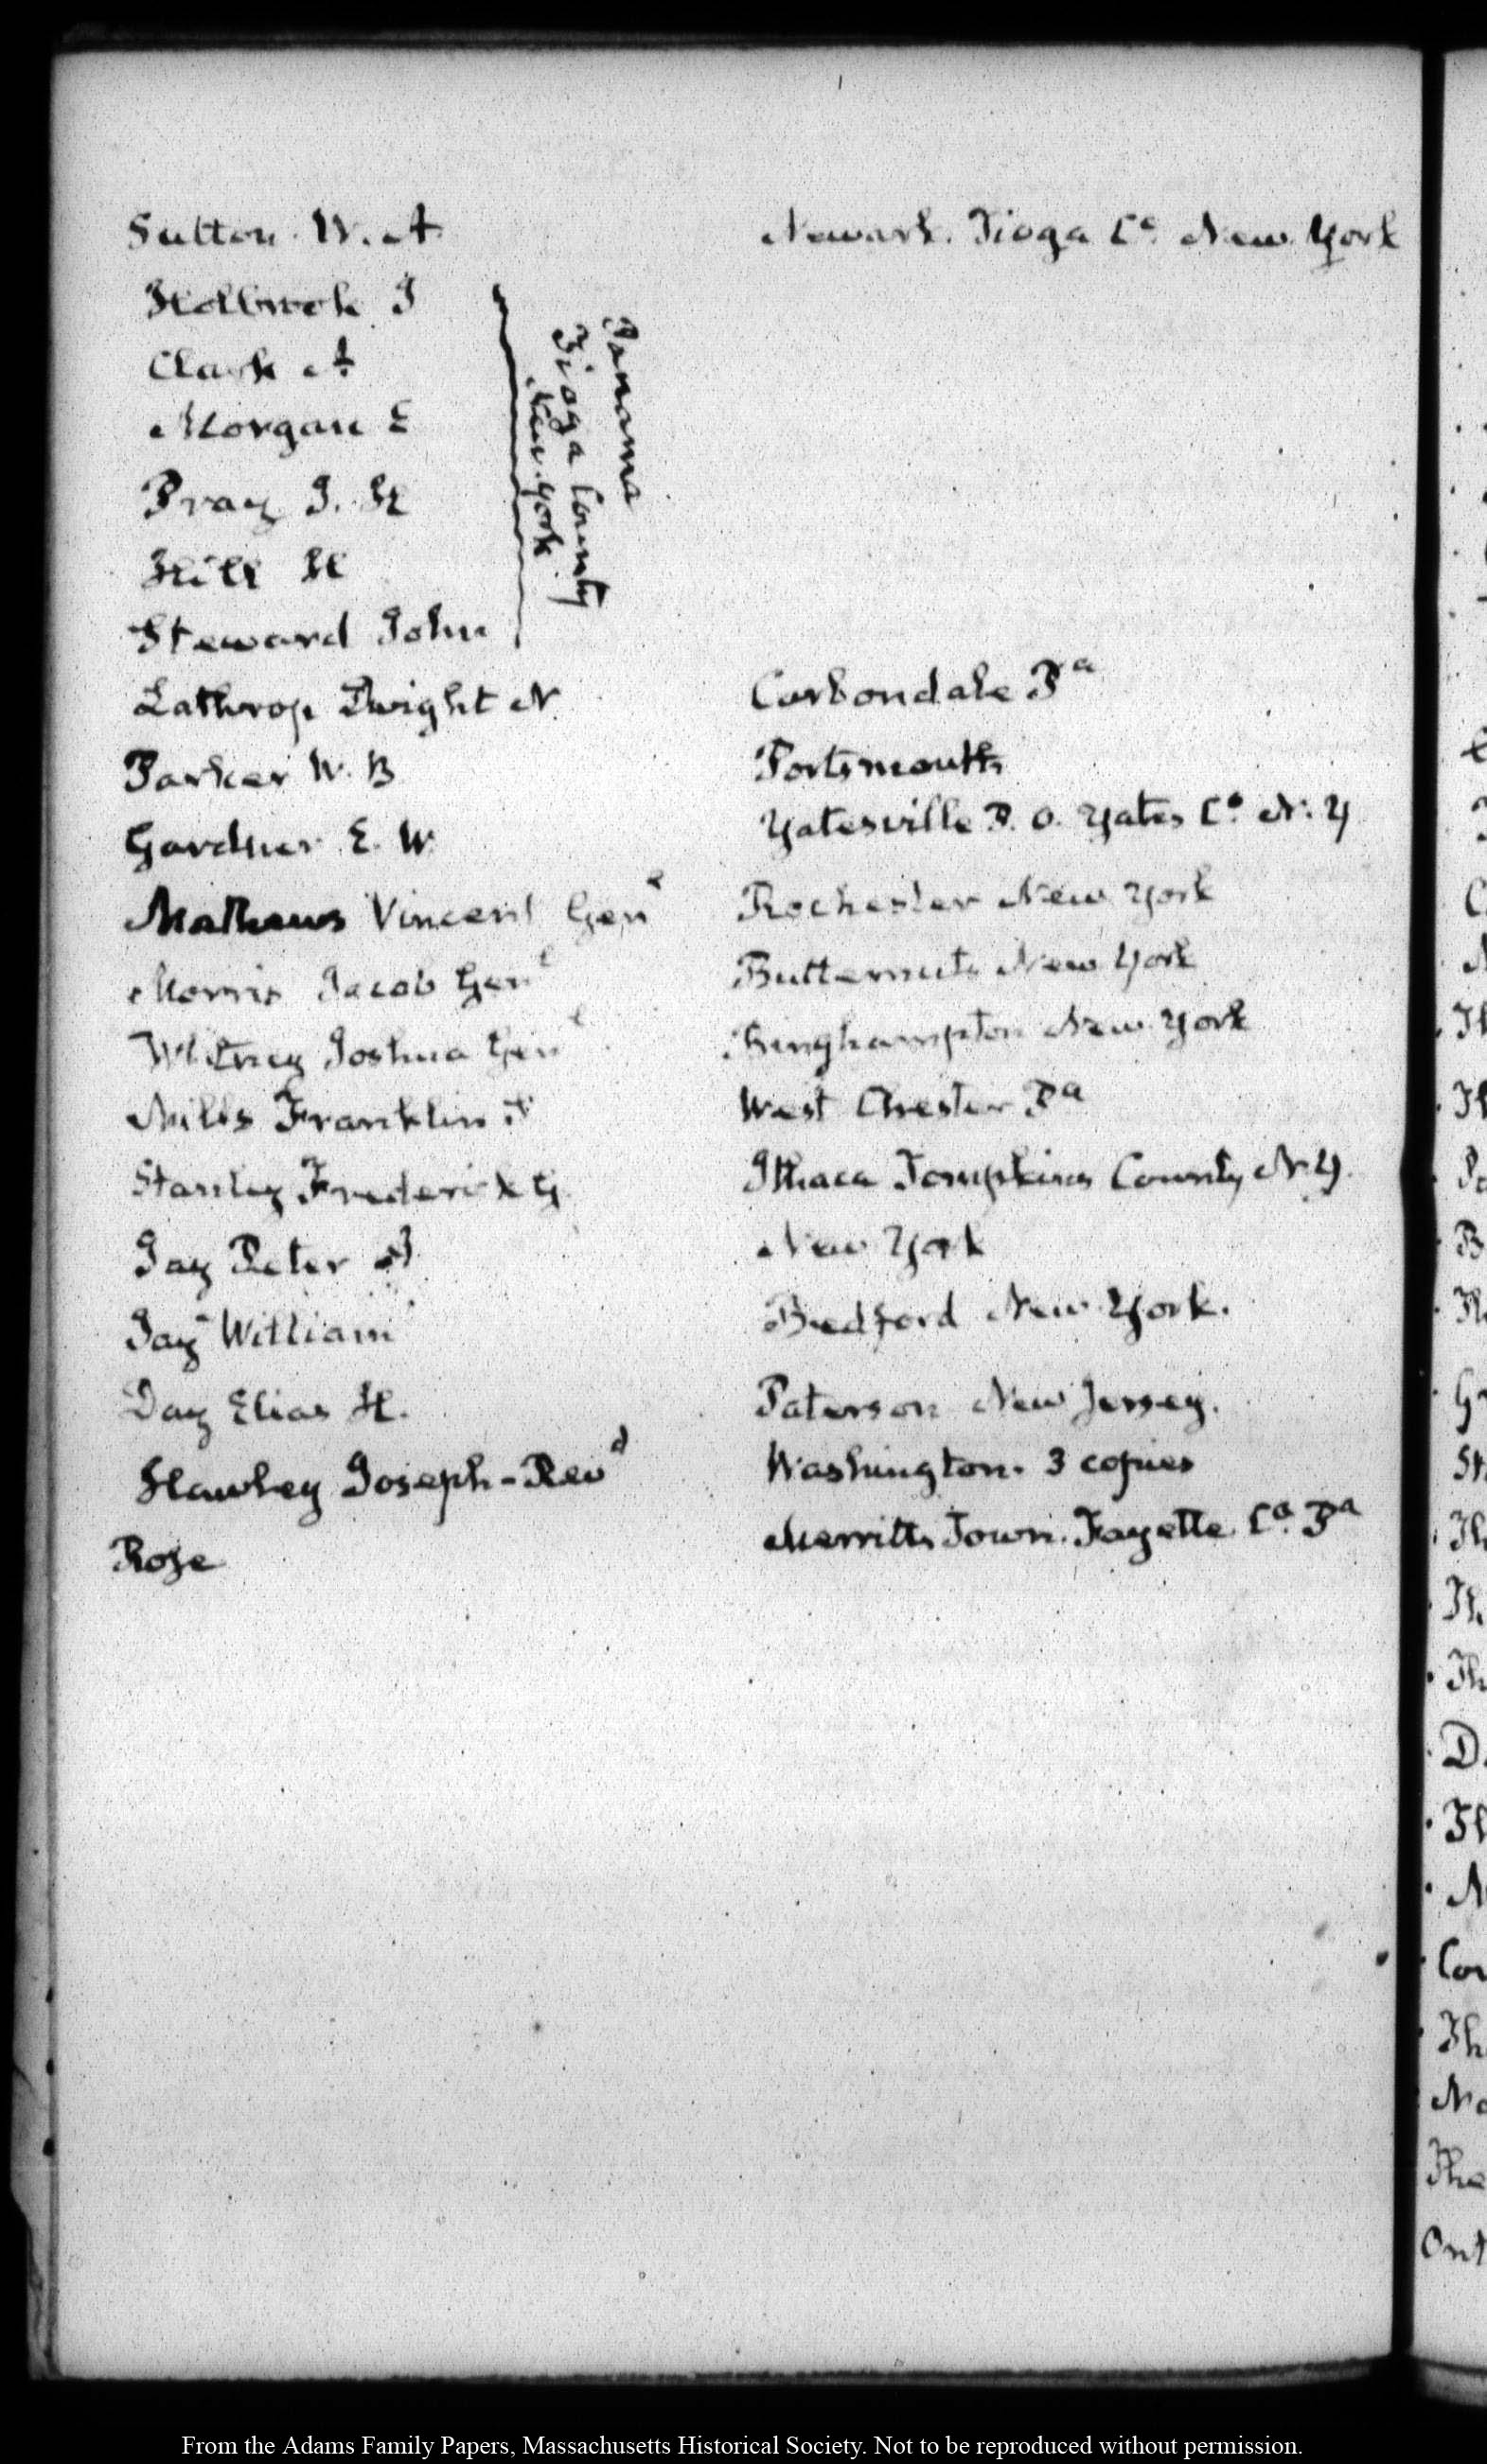 Sutton. W. A. Newark. Tioga Co. New York
Holbrook J
Clark A
Morgan E
Pray J. H
Hill H
Steward John
Panama
Tioga County
New York
Lathrop Dwight N. Carbondale Pa
Parker W. B Portsmouth
Gardner E. W. Yatesville P. O. Yates Co. N. Y
Mathews Vincent Genl Rochester New York
Morris Jacob Genl Butternuts New York
Whitney Joshua Genl Binghampton New York
Mills Franklin West Chester Pa
Stanley Frederick G. Ithaca Tompkins County N.Y.
Jay Peter A New York
Jay William Bedford New York.
Day Elias H. Paterson New Jersey.
Hawley Joseph - Revd Washington. 3 copies
Rose Merritts Town. Fayette Co. Pa
From the Adams Family Papers, Massachusetts Historical Society. Not to be reproduced without permission.